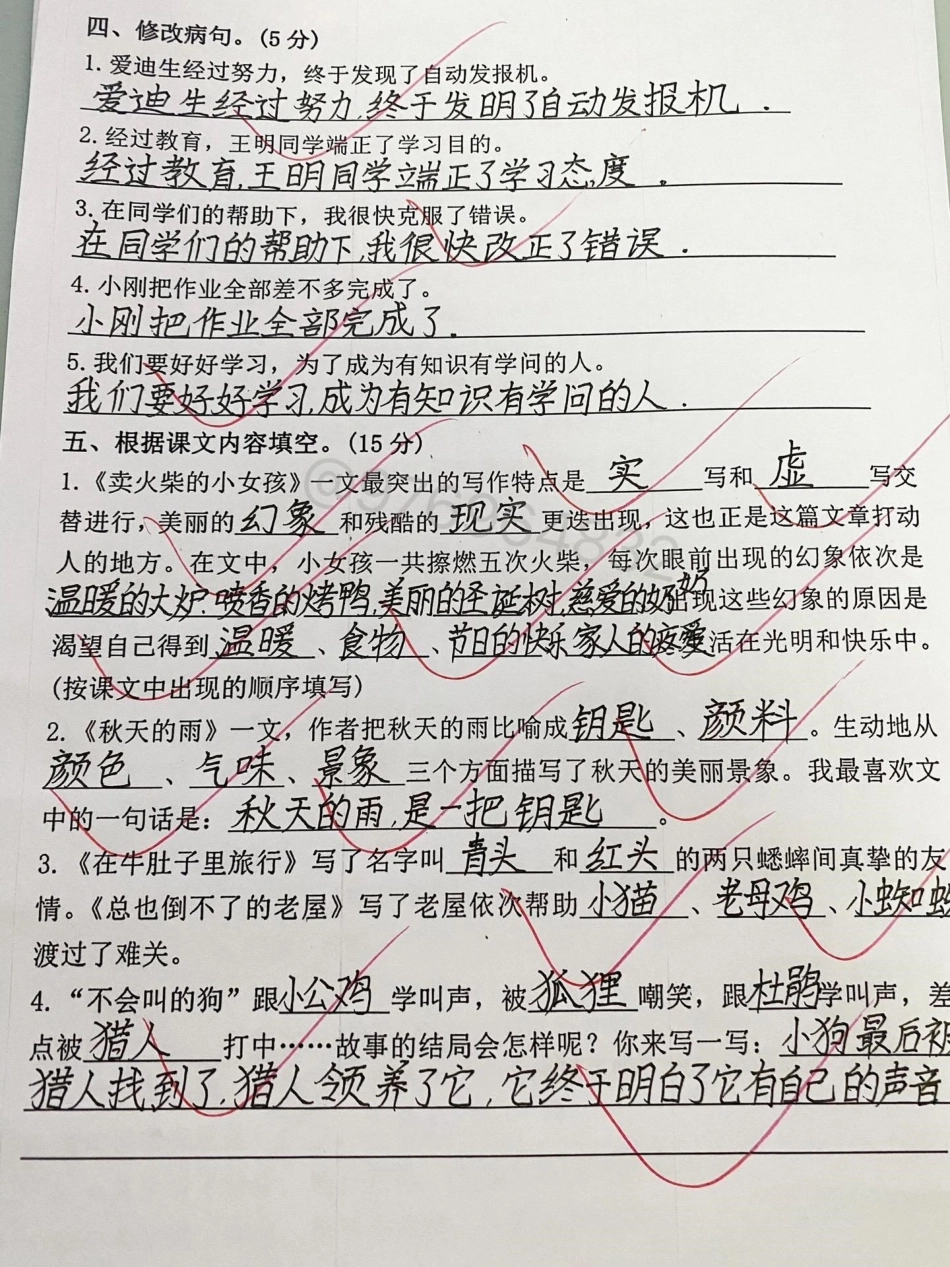 四、修改病句。(5分)
1. 爱迪生经过努力，终于发现了自动发报机。
爱迪生经过努力,终于发明了自动发报机.
2. 经过教育，王明同学端正了学习目的。
经过教育,王明同学端正了学习态度.
3. 在同学们的帮助下，我很快克服了错误。
在同学们的帮助下,我很快改正了错误.
4. 小刚把作业全部差不多完成了。
小刚把作业全部完成了.
5. 我们要好好学习，为了成为有知识有学问的人。
我们要好好学习,成为有知识有学问的人.
五、根据课文内容填空。(15分)
1.《卖火柴的小女孩》一文最突出的写作特点是 实 写和 虚 写交
替进行，美丽的 幻象 和残酷的 现实 更迭出现，这也正是这篇文章打动
人的地方。在文中，小女孩一共擦燃五次火柴，每次眼前出现的幻象依次是
温暖的大炉.喷香的烤鸭,美丽的圣诞树,慈爱的奶奶出现这些幻象的原因是
渴望自己得到 温暖 、食物 、节日的快乐 家人的疼爱活在光明和快乐中。
(按课文中出现的顺序填写)
2.《秋天的雨》一文，作者把秋天的雨比喻成 钥匙 、颜料 。生动地从
颜色 、气味 、景象 三个方面描写了秋天的美丽景象。我最喜欢文
中的一句话是： 秋天的雨,是一把钥匙 。
3.《在牛肚子里旅行》写了名字叫 青头 和 红头 的两只蟋蟀间真挚的友
情。《总也倒不了的老屋》写了老屋依次帮助 小猫 、老母鸡 、小蜘蛛
渡过了难关。
4.“不会叫的狗”跟 小公鸡 学叫声，被 狐狸 嘲笑，跟 杜鹃 学叫声，差
点被 猎人 打中……故事的结局会怎样呢？你来写一写： 小狗最后被
猎人找到了,猎人领养了它,它终于明白了它有自己的声音